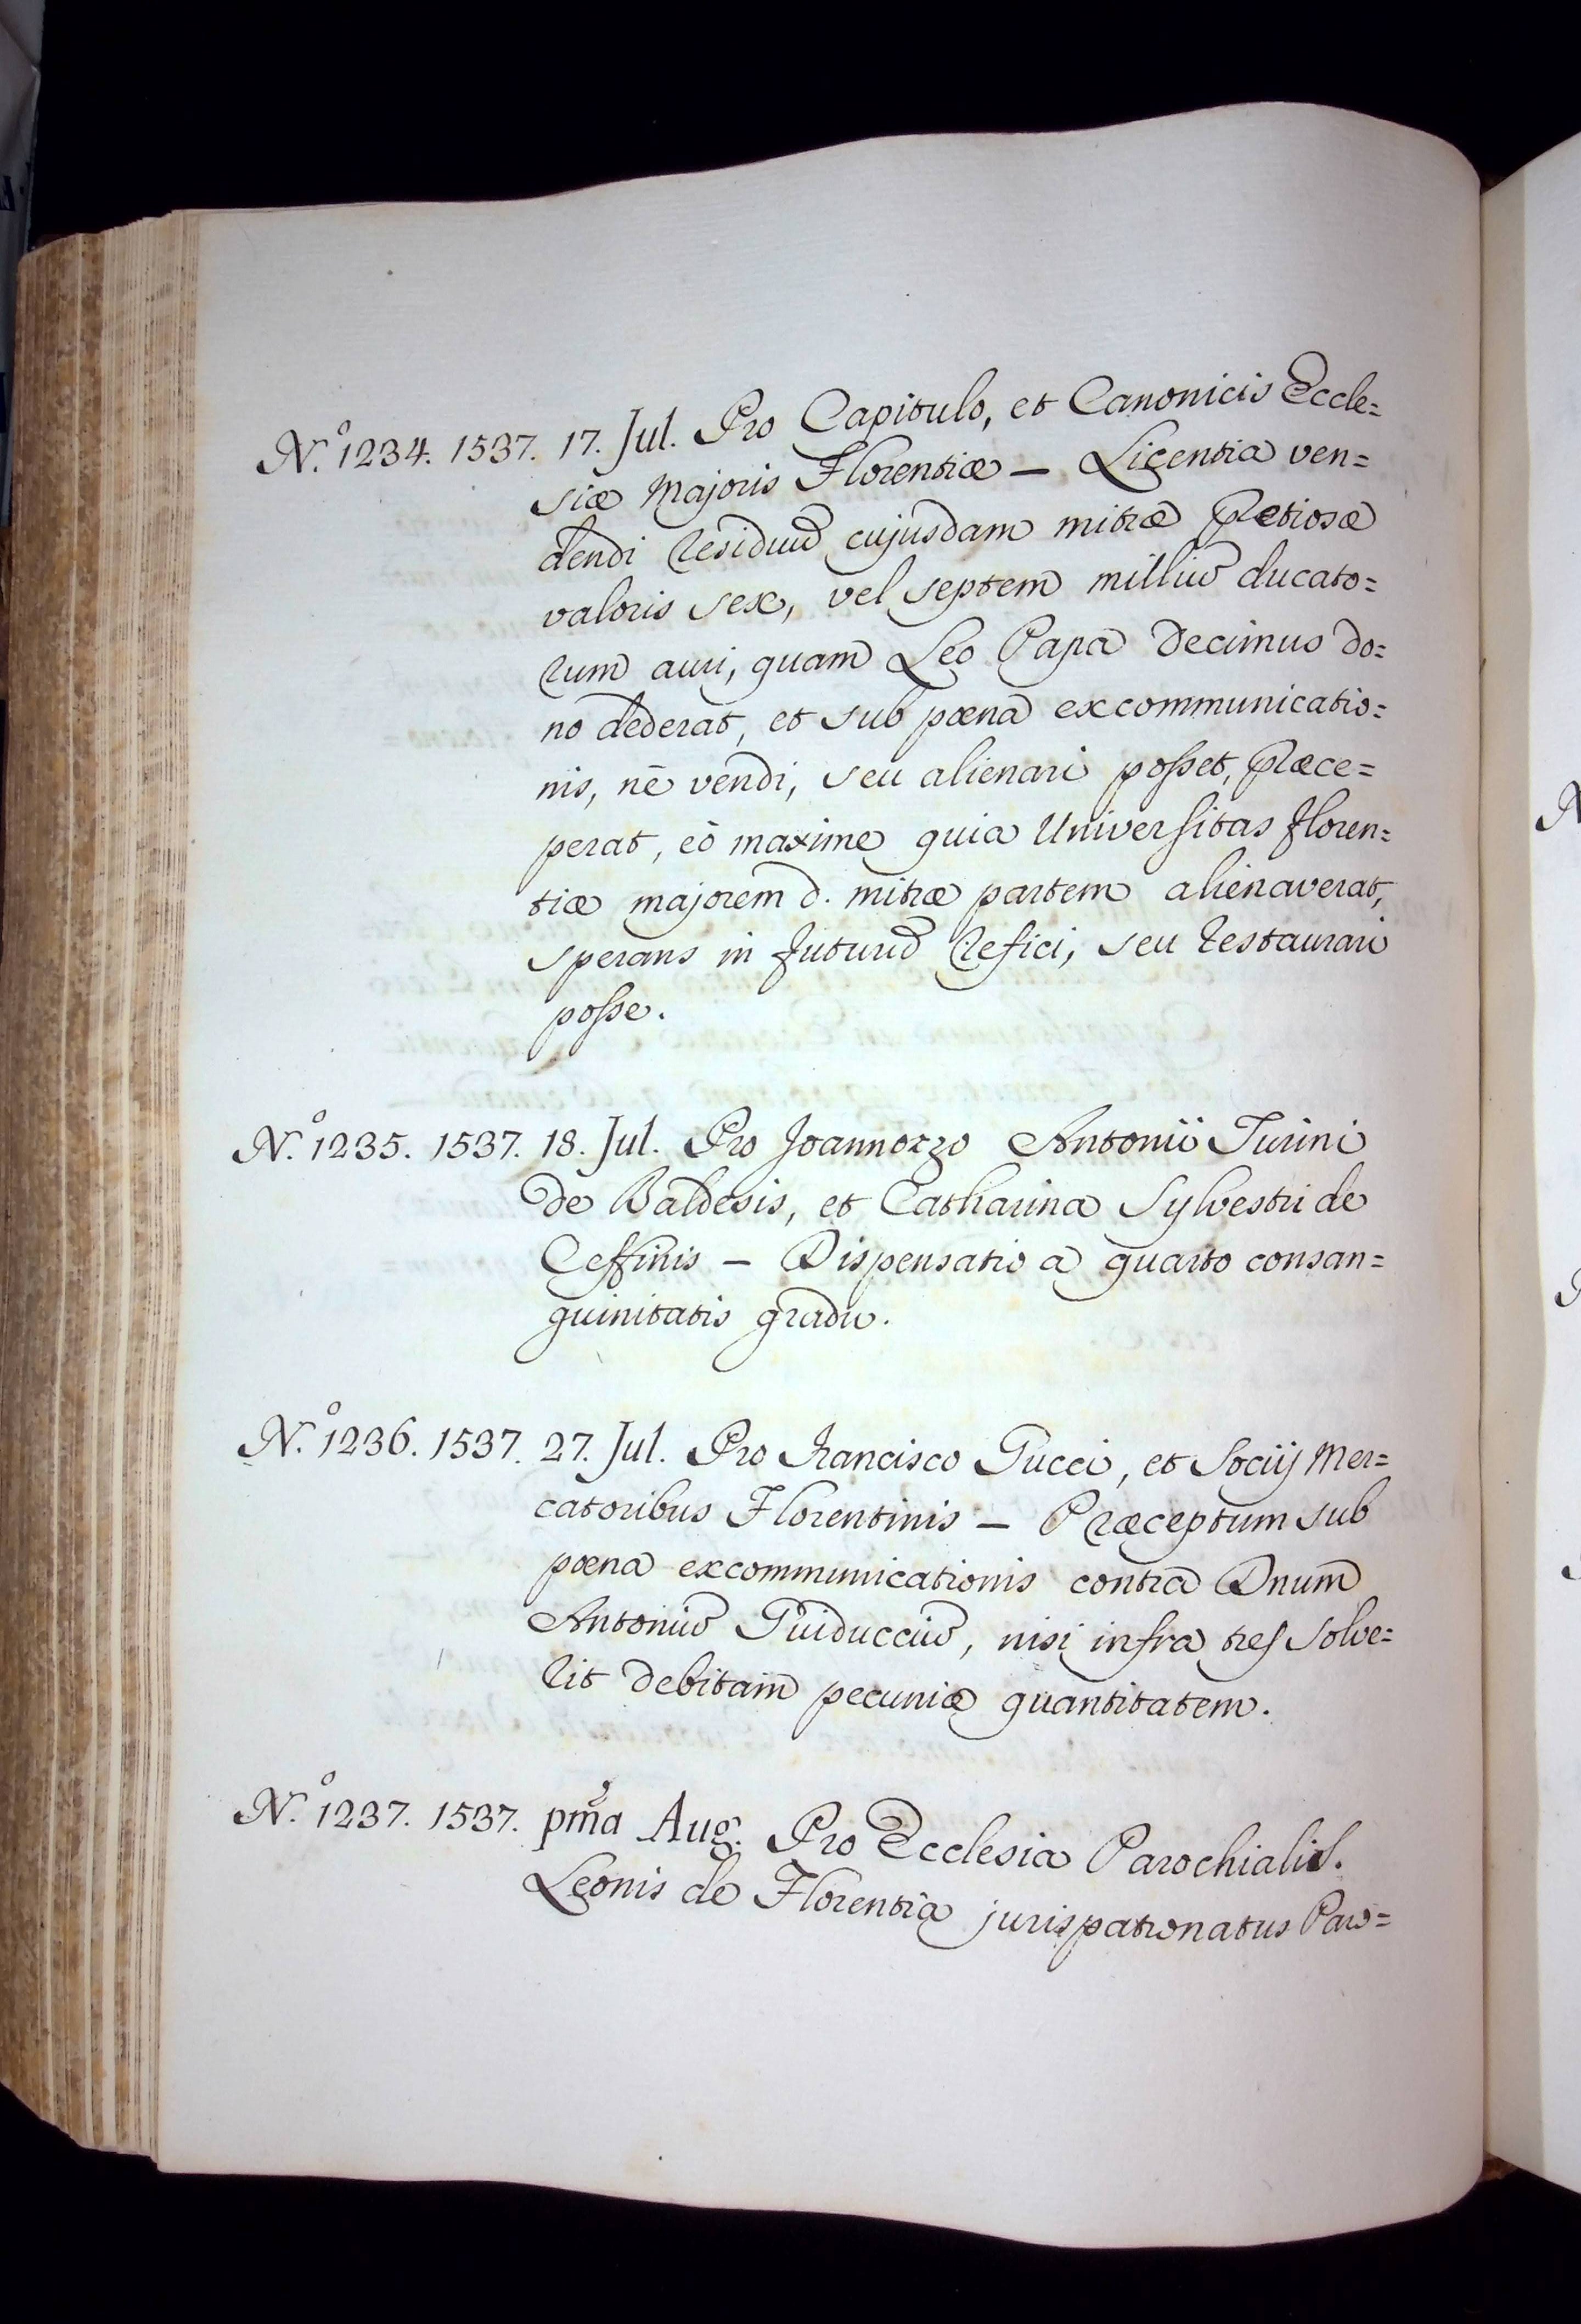 N.º 1234. 1537. 17. Jul. Pro Capitulo, et Canonicis Eccle=
siæ Majoris Florentiæ — Licentia ven=
dendi residuũ cujusdam mitræ pretiosæ
valoris sex, vel septem milliũ ducato=
rum auri, quam Leo Papa Decimus do=
no dederat, et sub pœna excommunicatio=
nis, nè vendi, seu alienari posset, præce=
perat, eò maxime quia Universitas Floren=
tiæ majorem d. mitræ partem alienaverat,
sperans in futurũ refici, seu restaurari
posse.
N.º 1235. 1537. 18. Jul. Pro Joannozzo Antonii Turini
de Baldesis, et Catharina Sylvestri de
Ceffinis — Dispensatio a quarto consan=
guinitatis gradu.
N.º 1236. 1537. 27. Jul. Pro Francisco Pucci, et Sociij Mer=
catoribus Florentinis — Præceptum sub
pœna excommunicationis contra Dnum
Antoniũ Guiducciũ, nisi infra tres solve=
rit debitam pecuniæ quantitatem.
N.º 1237. 1537. pm̃a Aug. Pro Ecclesia Parochiali S.
Leonis de Florentia jurispatronatus Paro=